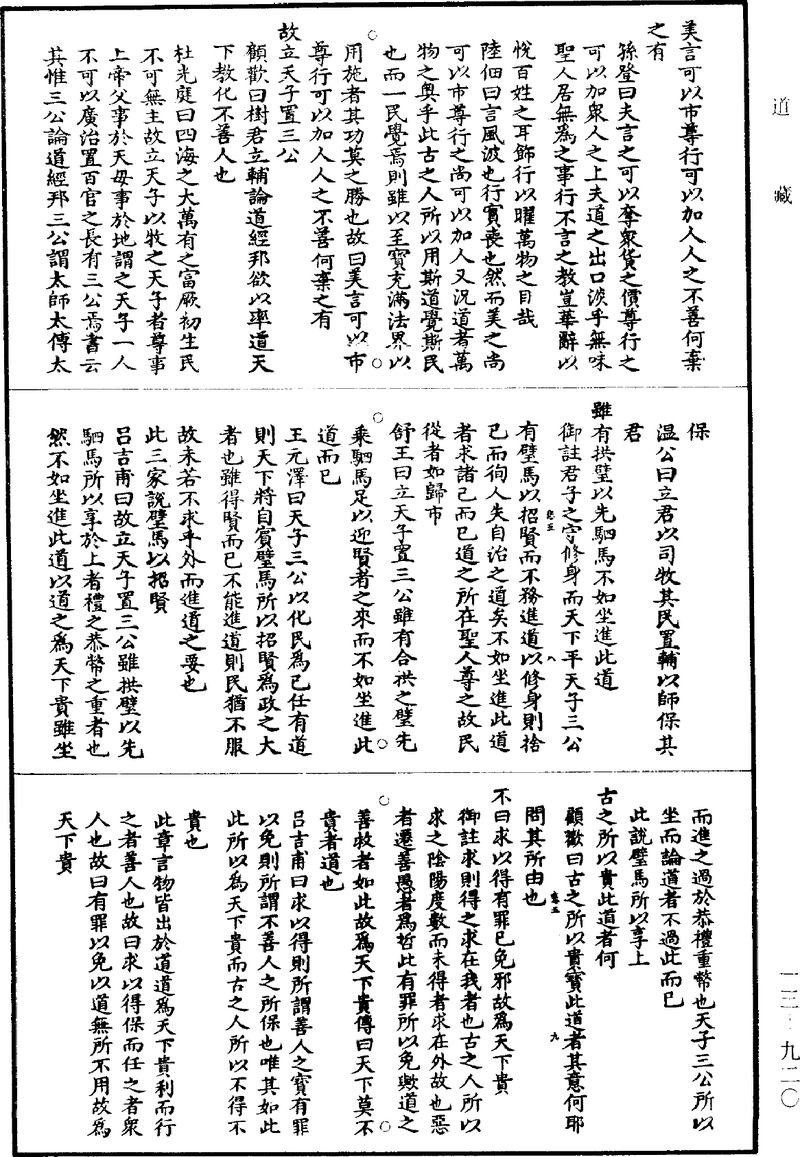 道藏
美言可以市尊行可以加人人之不善何棄
之有
孫登曰夫言之可以奪衆貨之價尊行之
可以加衆人之上夫道之出口淡乎無味
聖人居無爲之事行不言之教豈華辭以
悅百姓之耳飾行以曜萬物之目哉
陸佃曰言風波也行實喪也然而美之尚
可以市尊行之尚可以加人又況道者萬
物之奧乎此古之人所以用斯道覺斯民
也而一民覺焉則雖以至寶充滿法界以
用施者其功莫之勝也故曰美言可以市
尊行可以加人人之不善何棄之有
故立天子置三公
顧歡曰樹君立輔論道經邦欲以率道天
下教化不善人也
杜光庭曰四海之大萬有之富厥初生民
不可無主故立天子以牧之天子者尊事
上帝父事於天母事於地謂之天子一人
不可以廣治置百官之長有三公焉書云
其惟三公論道經邦三公謂太師太傅太
保
溫公曰立君以司牧其民置輔以師保其
君
雖有拱璧以先駟馬不如坐進此道
御註君子之守修身而天下平天子三公
有璧馬以招賢而不務進道以修身則捨
己而徇人失自治之道矣不如坐進此道
者求諸己而已道之所在聖人尊之故民
從者如歸市
舒王曰立天子置三公雖有合拱之璧先
乘駟馬足以迎賢者之來而不如坐進此
道而已
王元澤曰天子三公以化民爲己任有道
則天下將自賓璧馬所以招賢爲政之大
者也雖得賢而已不能進道則民猶不服
故未若不求乎外而進道之要也
此三家說璧馬以招賢
呂吉甫曰故立天子置三公雖拱璧以先
駟馬所以享於上者禮之恭幣之重者也
然不如坐進此道以道之爲天下貴雖坐
而進之過於恭禮重幣也天子三公所以
坐而論道者不過此而已
此說璧馬所以享上
古之所以貴此道者何
顧歡曰古之所以貴寶此道者其意何耶
問其所由也
不曰求以得有罪已免邪故爲天下貴
御註求則得之求在我者也古之人所以
求之陰陽度數而未得者求在外故也惡
者遷善愚者爲哲此有罪所以免歟道之
善救者如此故爲天下貴傳曰天下莫不
貴者道也
呂吉甫曰求以得則所謂善人之寶有罪
以免則所謂不善人之所保也唯其如此
此所以爲天下貴而古之人所以不得不
貴也
此章言物皆出於道道爲天下貴利而行
之者善人也故曰求以得保而任之者衆
人也故曰有罪以免以道無所不用故爲
天下貴
一三-九二〇